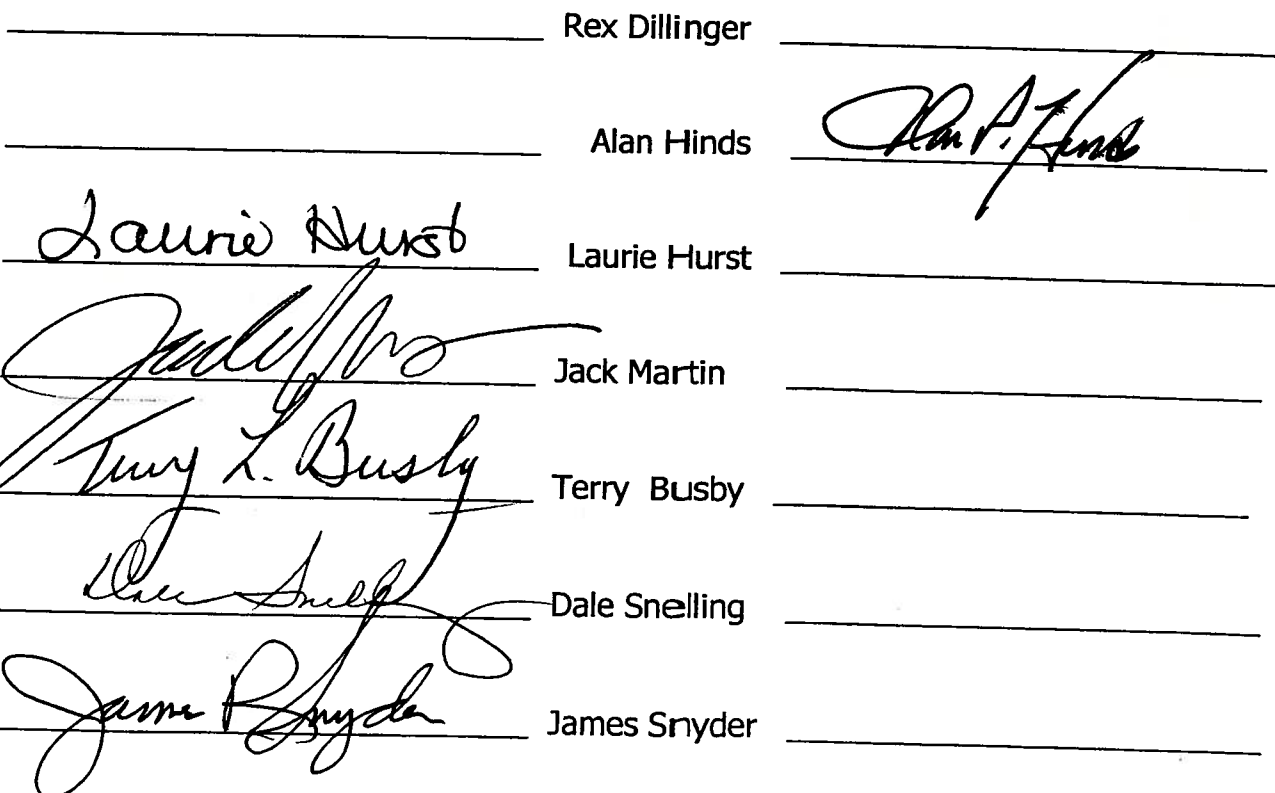 Rex Dillinger
Alan Hinds Alan P. Hinds
Laurie Hurst Laurie Hurst
Jack Martin
Terry L. Busby Terry Busby
Dale Snelling Dale Snelling
James R Snyder James Snyder